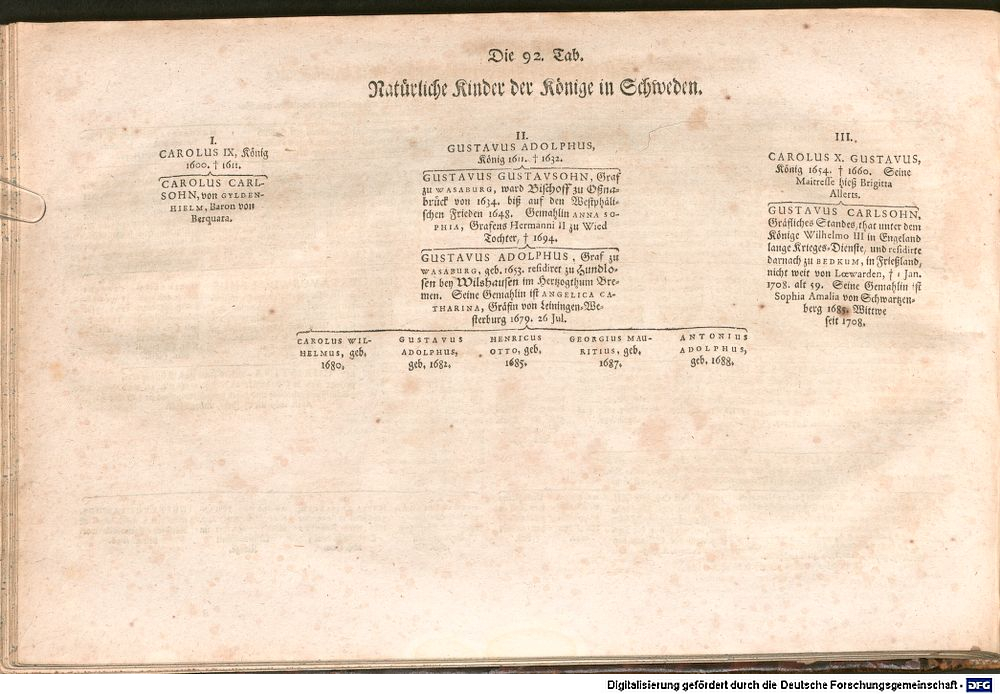 Die 92. Tab.
Natürliche Kinder der Könige in Schweden.
I.
CAROLUS IX, König
1600. † 1611.
CAROLUS CARL-
SOHN, von GYLDEN-
HIELM, Baron von
Berquara.
II.
GUSTAVUS ADOLPHUS,
König 1611. † 1632.
GUSTAVUS GUSTAVSOHN, Graf
zu WASABURG, ward Bischoff zu Oßna-
brück von 1634. biß auf den Westphäli-
schen Frieden 1648. Gemahlin ANNA SO-
PHIA, Grafens Hermanni II zu Wied
Tochter, † 1694.
GUSTAVUS ADOLPHUS, Graf zu
WASABURG, geb. 1653. residiret zu Hundlo-
sen bey Wilshausen im Hertzogthum Bre-
men. Seine Gemahlin ist ANGELICA CA-
THARINA, Gräfin von Leiningen-We-
sterburg 1679. 26 Jul.
CAROLUS WIL-
HELMUS, geb.
1680.
GUSTAVUS
ADOLPHUS,
geb. 1682.
HENRICUS
OTTO, geb.
1685.
GEORGIUS MAU-
RITIUS, geb.
1687.
ANTONIUS
ADOLPHUS,
geb. 1688.
III.
CAROLUS X. GUSTAVUS,
König 1654. † 1660. Seine
Maitresse hieß Brigitta
Allerts.
GUSTAVUS CARLSOHN,
Gräfliches Standes, that unter dem
Könige Wilhelmo III in Engeland
lange Krieges-Dienste, und residirte
darnach zu BEDKUM, in Frießland,
nicht weit von Lœwarden, † 1 Jan.
1708. alt 59. Seine Gemahlin ist
Sophia Amalia von Schwartzen-
berg 1685. Wittwe
seit 1708.
Digitalisierung gefördert durch die Deutsche Forschungsgemeinschaft - DFG